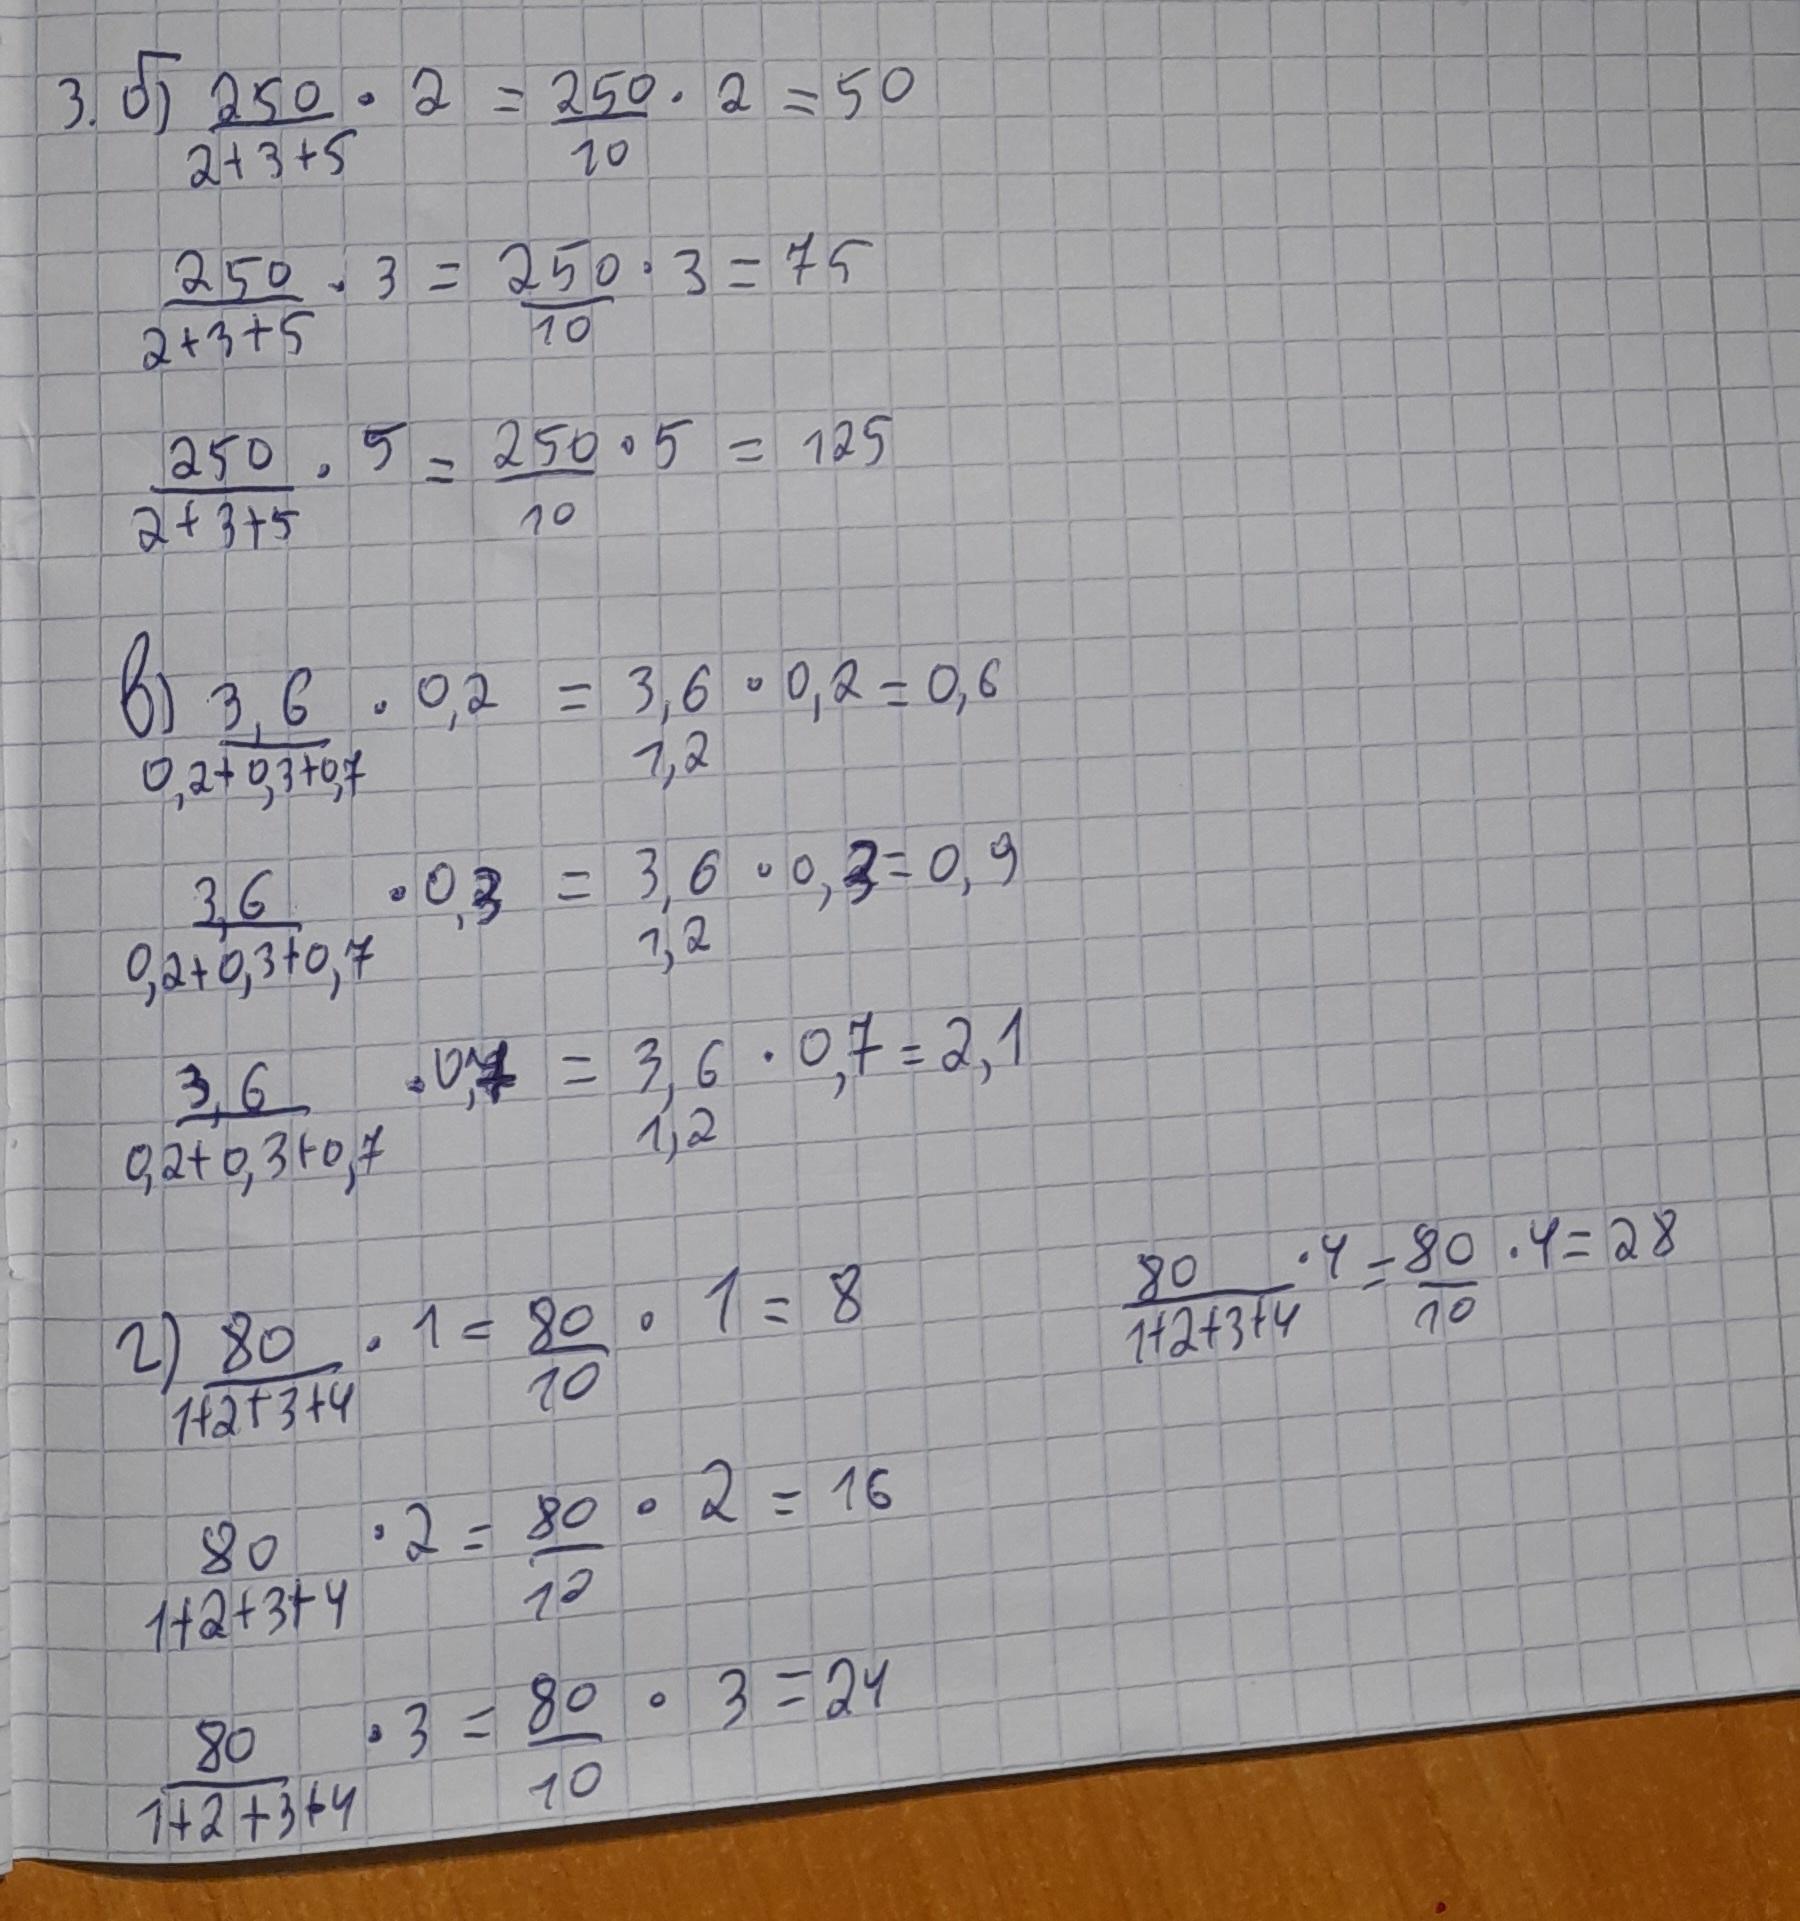 3. б) 250/(2+3+5) · 2 = 250/10 · 2 = 50
250/(2+3+5) · 3 = 250/10 · 3 = 75
250/(2+3+5) · 5 = 250/10 · 5 = 125
в) 3,6/(0,2+0,3+0,7) · 0,2 = 3,6/1,2 · 0,2 = 0,6
3,6/(0,2+0,3+0,7) · 0,3 = 3,6/1,2 · 0,3 = 0,9
3,6/(0,2+0,3+0,7) · 0,7 = 3,6/1,2 · 0,7 = 2,1
г) 80/(1+2+3+4) · 1 = 80/10 · 1 = 8
80/(1+2+3+4) · 2 = 80/10 · 2 = 16
80/(1+2+3+4) · 3 = 80/10 · 3 = 24
80/(1+2+3+4) · 4 = 80/10 · 4 = 28